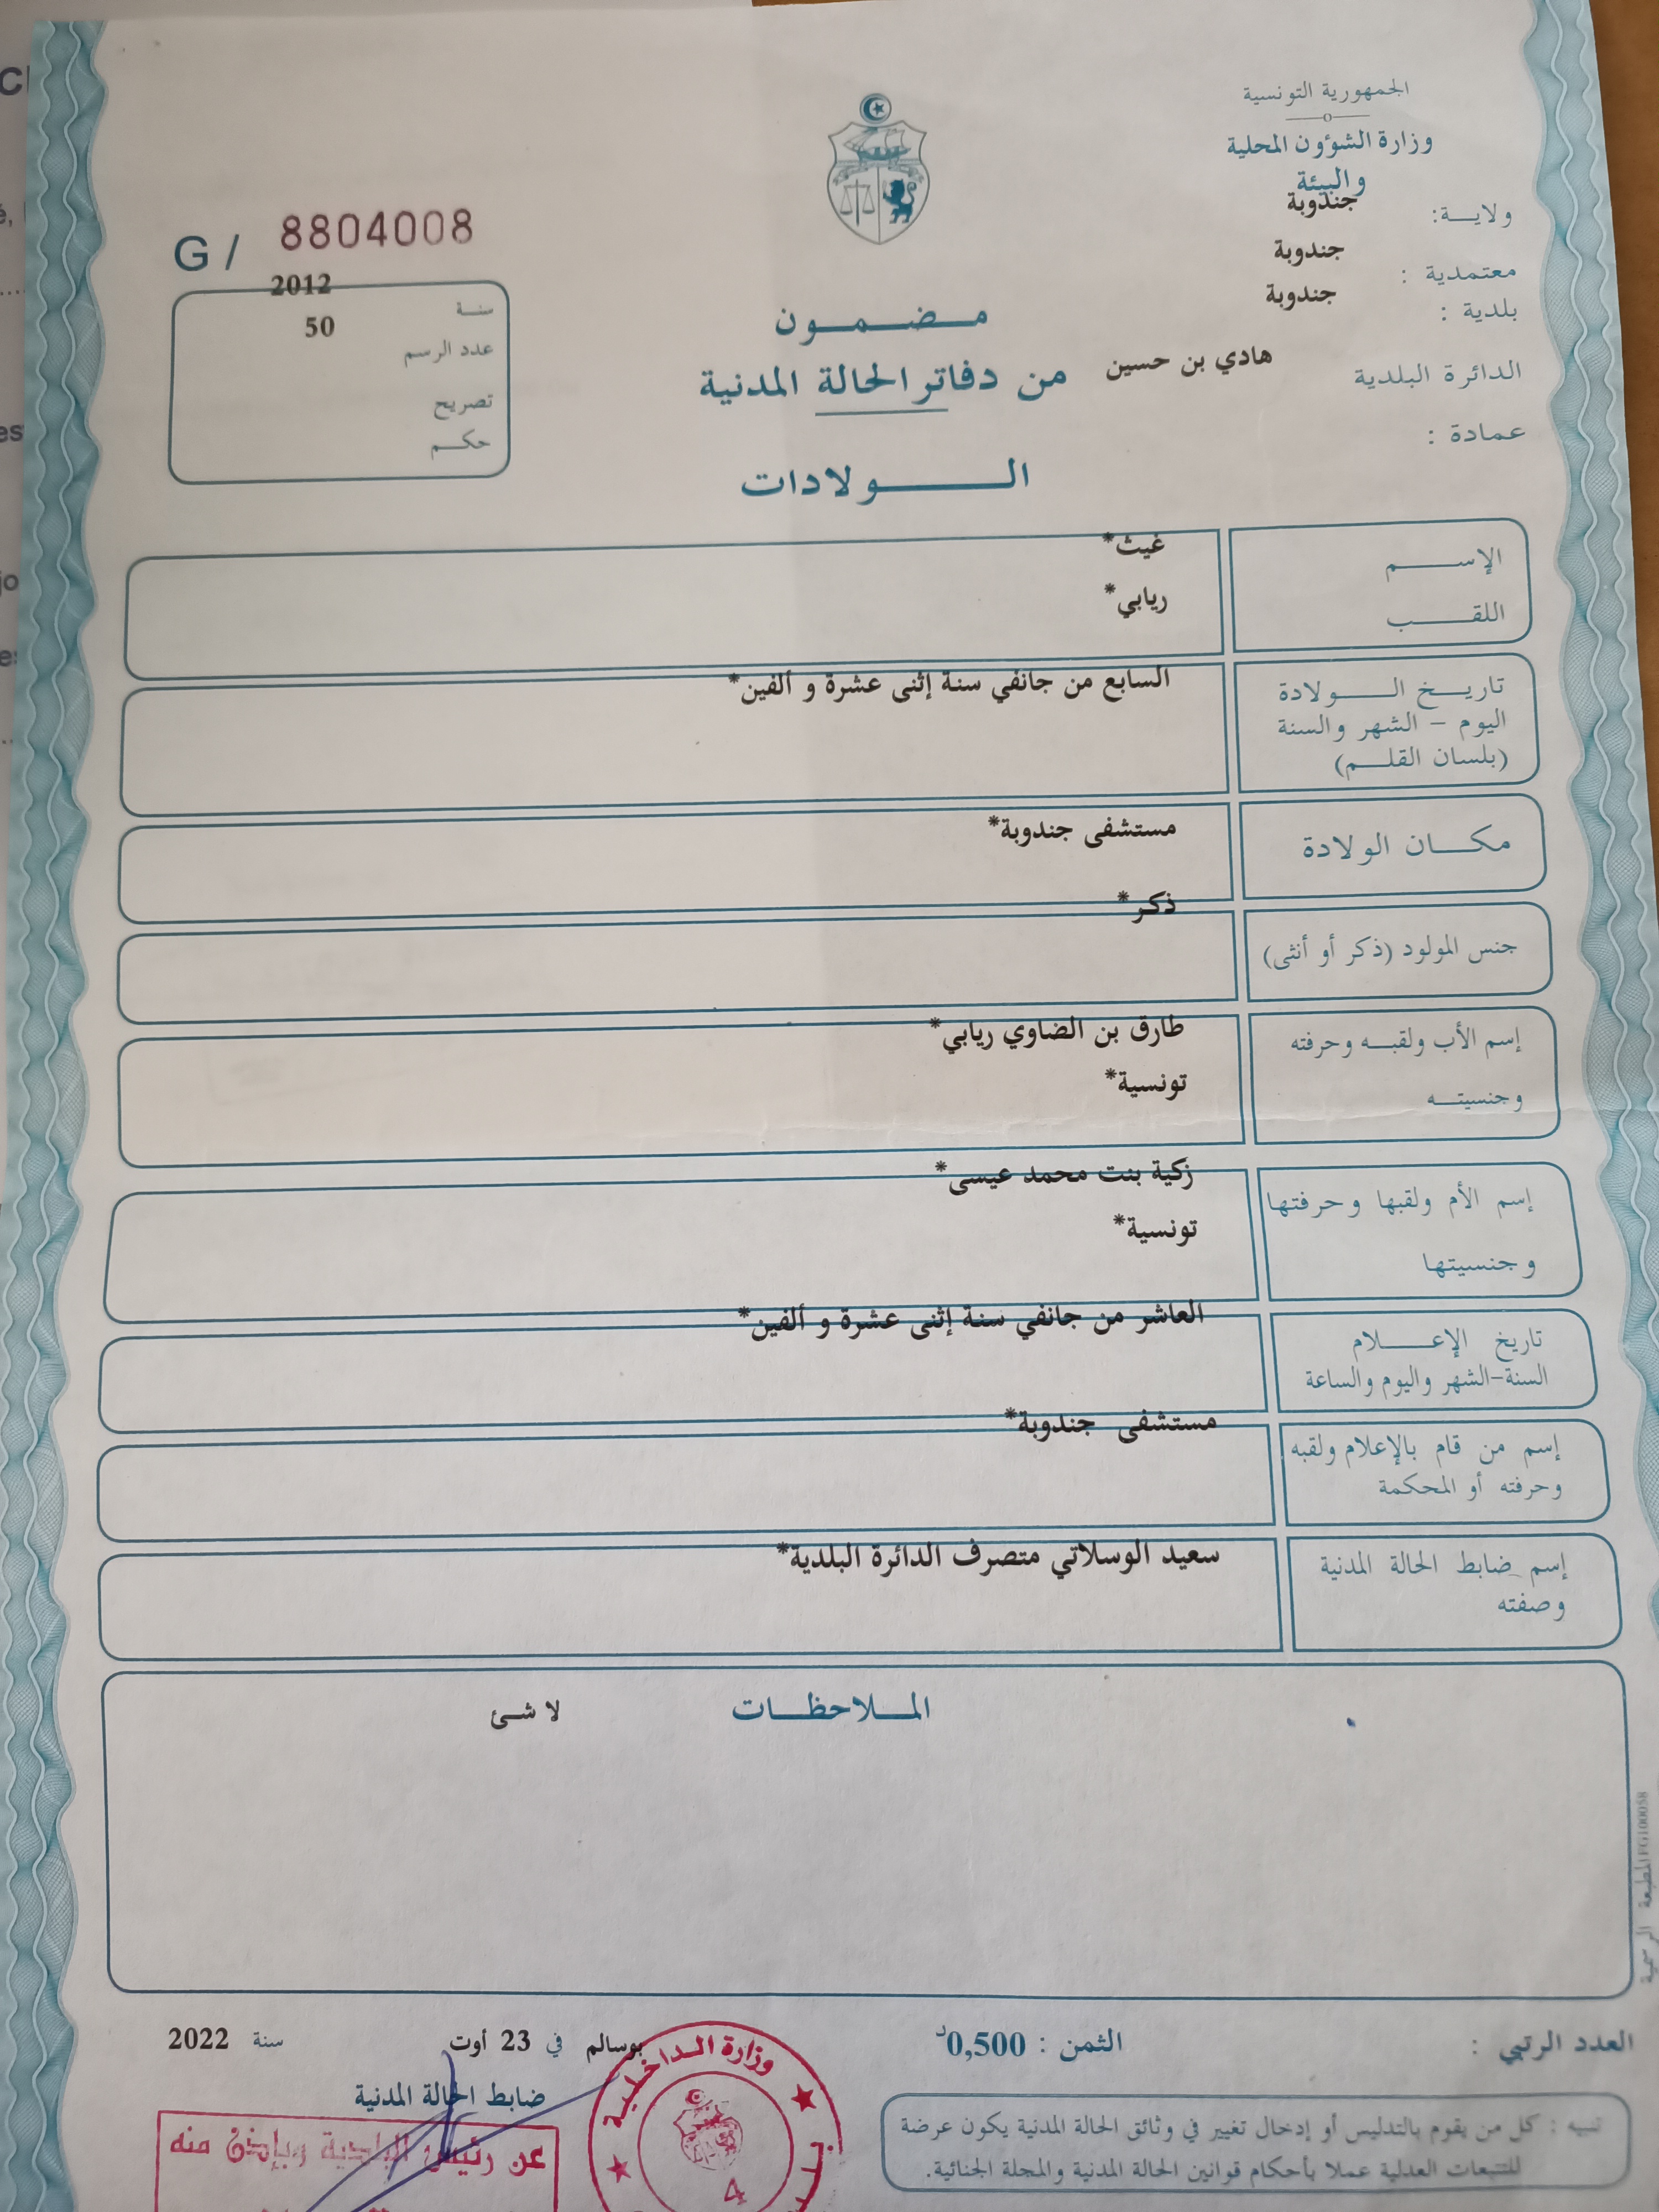 الجمهورية التونسية
وزارة الشؤون المحلية
والبيئة
ولايـــة: جندوبة
معتمدية : جندوبة
بلدية : جندوبة
الدائرة البلدية هادي بن حسين
عمادة :
G / 8804008
سنــة 2012
عدد الرسم 50
تصريح
حكــم
مــضــمــون
من دفاتر الحالة المدنية
الـــولادات
الإســـم غيث*
اللقــب ريابي*
تاريــخ الـــولادة السابع من جانفي سنة إثنى عشرة و ألفين*
اليوم – الشهر والسنة
(بلسان القلــم)
مكــان الولادة مستشفى جندوبة*
جنس المولود (ذكر أو أنثى) ذكر*
إسم الأب ولقبــه وحرفته طارق بن الضاوي ريابي*
وجنسيتــه تونسية*
إسم الأم ولقبها وحرفتها زكية بنت محمد عيسى*
وجنسيتها تونسية*
تاريخ الإعـــلام العاشر من جانفي سنة إثنى عشرة و ألفين*
السنة-الشهر واليوم والساعة
إسم من قام بالإعلام ولقبه مستشفى جندوبة*
وحرفته أو المحكمة
إسم ضابط الحالة المدنية سعيد الوسلاتي متصرف الدائرة البلدية*
وصفته
المــلاحظــات لا شئ
المطبعة الرسمية FG100058
العدد الرتبي :
الثمن : 0,500د
بوسالم في 23 أوت سنة 2022
ضابط الحالة المدنية
عن رئيس البلدية وبإذن منه
وزارة الداخلية
4
تنبيه : كل من يقوم بالتدليس أو إدخال تغيير في وثائق الحالة المدنية يكون عرضة
للتتبعات العدلية عملا بأحكام قوانين الحالة المدنية والمجلة الجنائية.